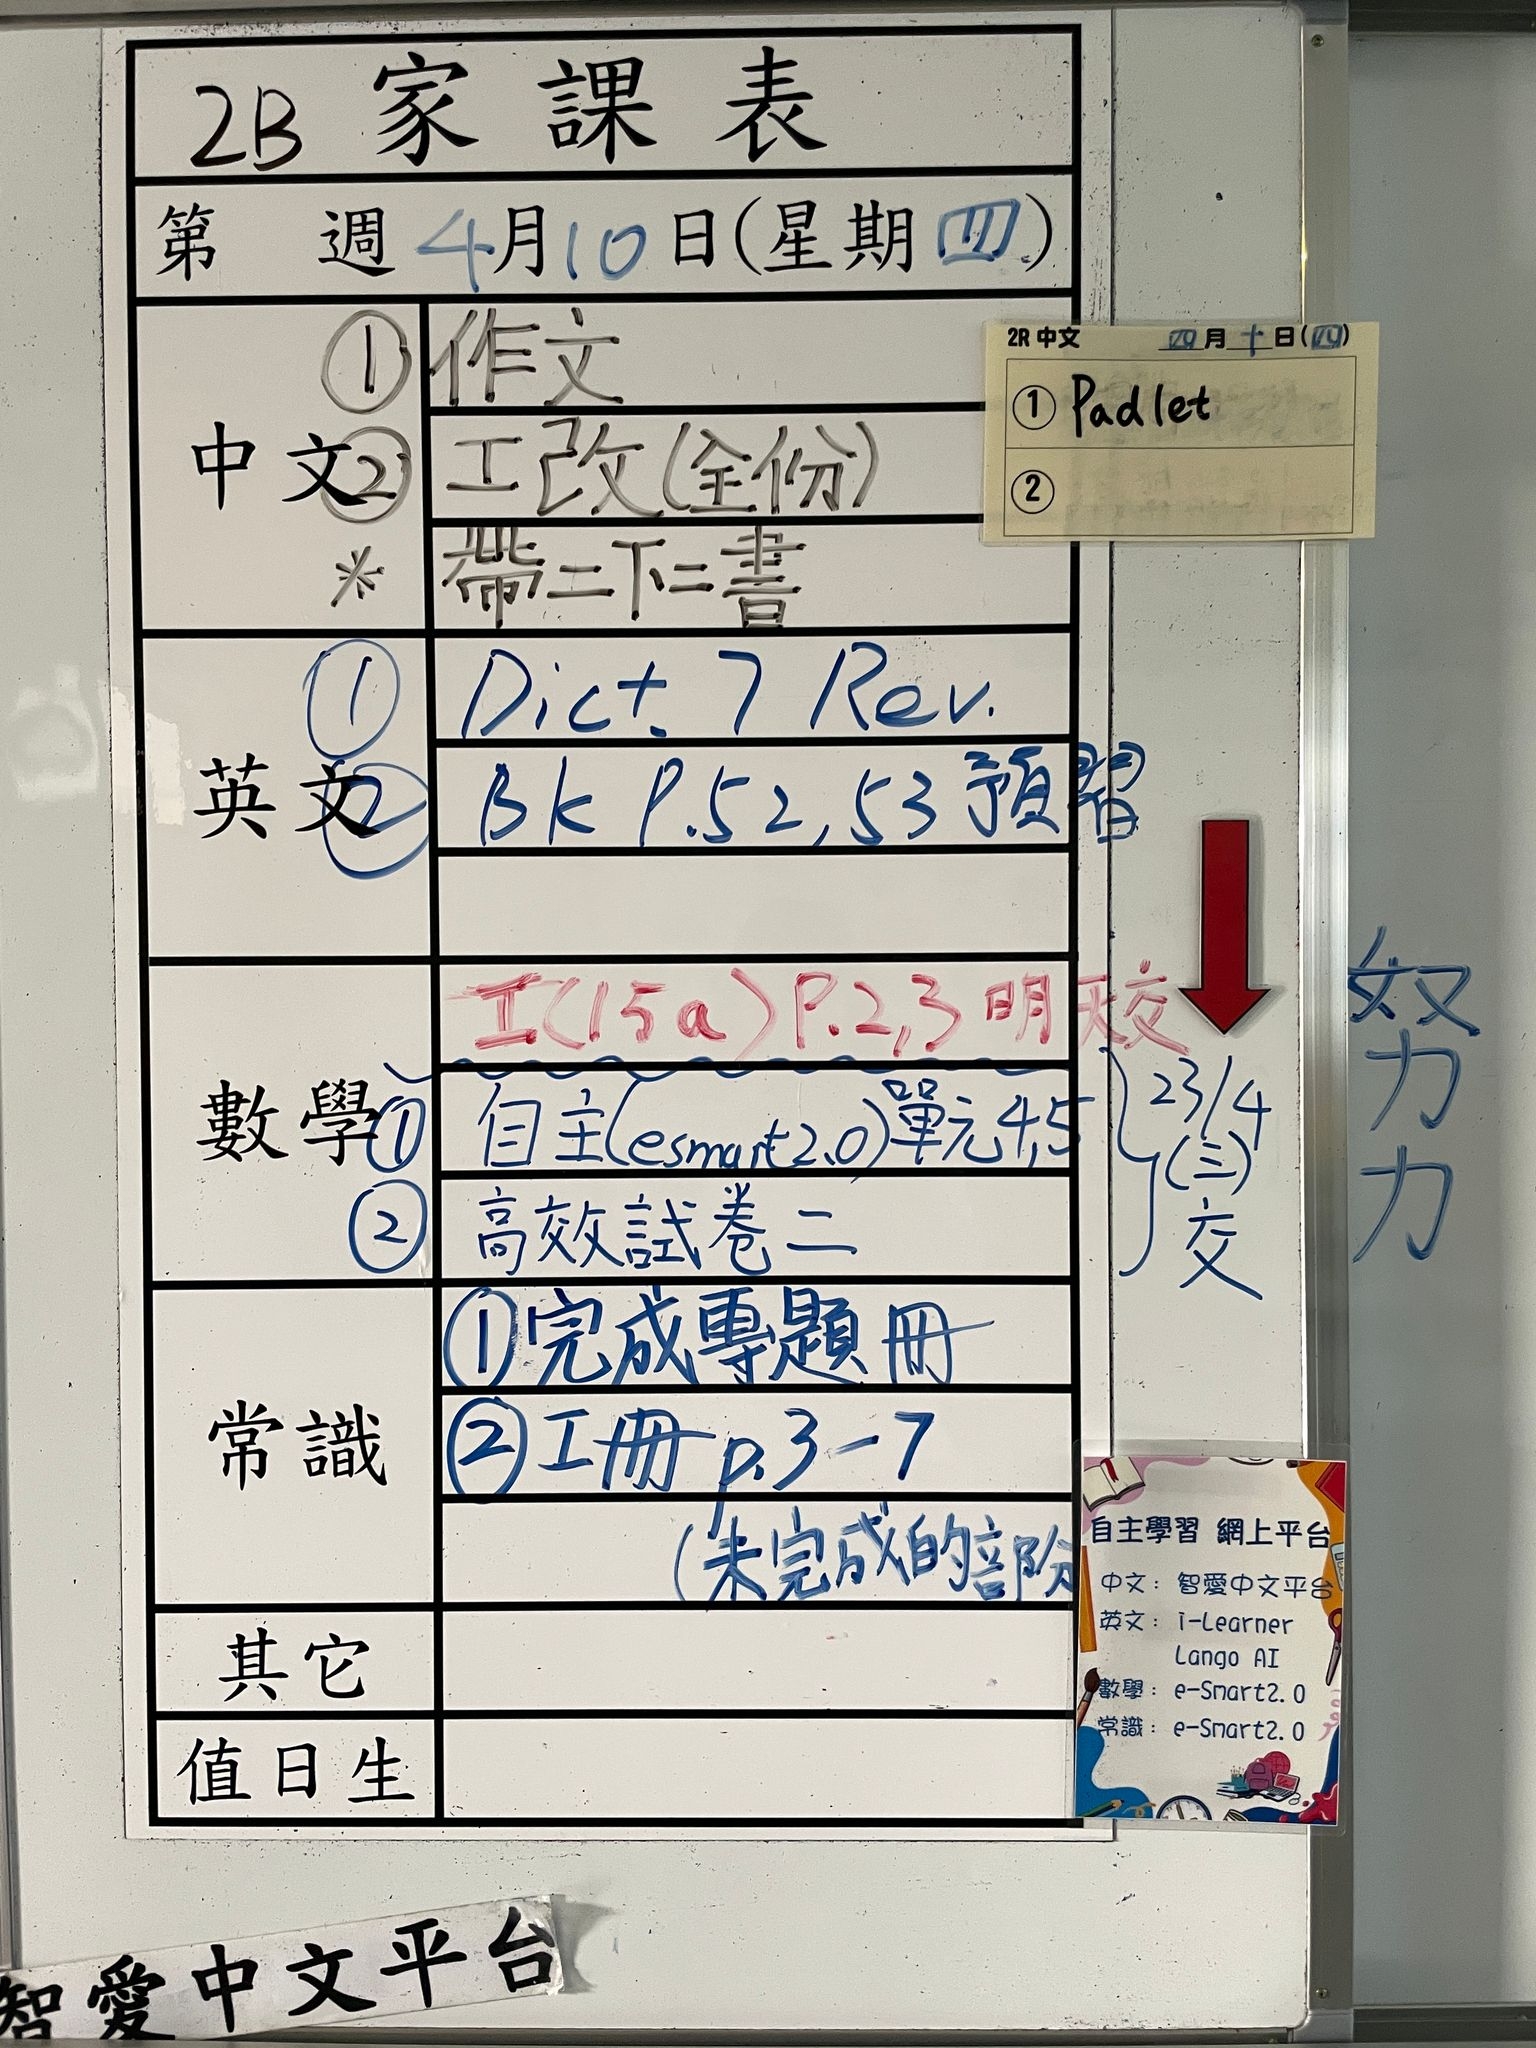 2B 家課表
第 週 4月10日(星期四)
中文
① 作文
② 工改(全份)
* 帶二下二書
2R 中文 四月十日(四)
① Padlet
②
英文
① Dict. 7 Rev.
② Bk P.52,53 預習
數學
工(15a) P.2,3 明天交
① 自主(esmart2.0)單元4,5
② 高效試卷二
23/4
(三)
交
努力
力
常識
① 完成專題冊
② 工冊 p.3-7
(未完成的部份
其它
值日生
自主學習 網上平台
中文: 智愛中文平台
英文: i-Learner
Lango AI
數學: e-Smart2.0
常識: e-Smart2.0
智愛中文平台